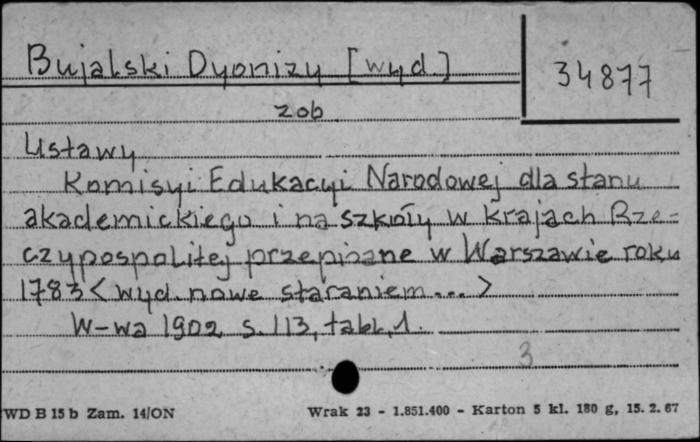 Bujalski Dyonizy [wyd.]
34877
zob
Ustawy
Komisyi Edukacyi Narodowej dla stanu
akademickiego i na szkoły w krajach Rze-
czypospolitej przepisane w Warszawie roku
1783 < wyd. nowe staraniem... >
W-wa 1902 s. 113, tabl. 1.
3
WD B 15 b Zam. 14/ON
Wrak 23 - 1.851.400 - Karton 5 kl. 180 g, 15. 2. 67